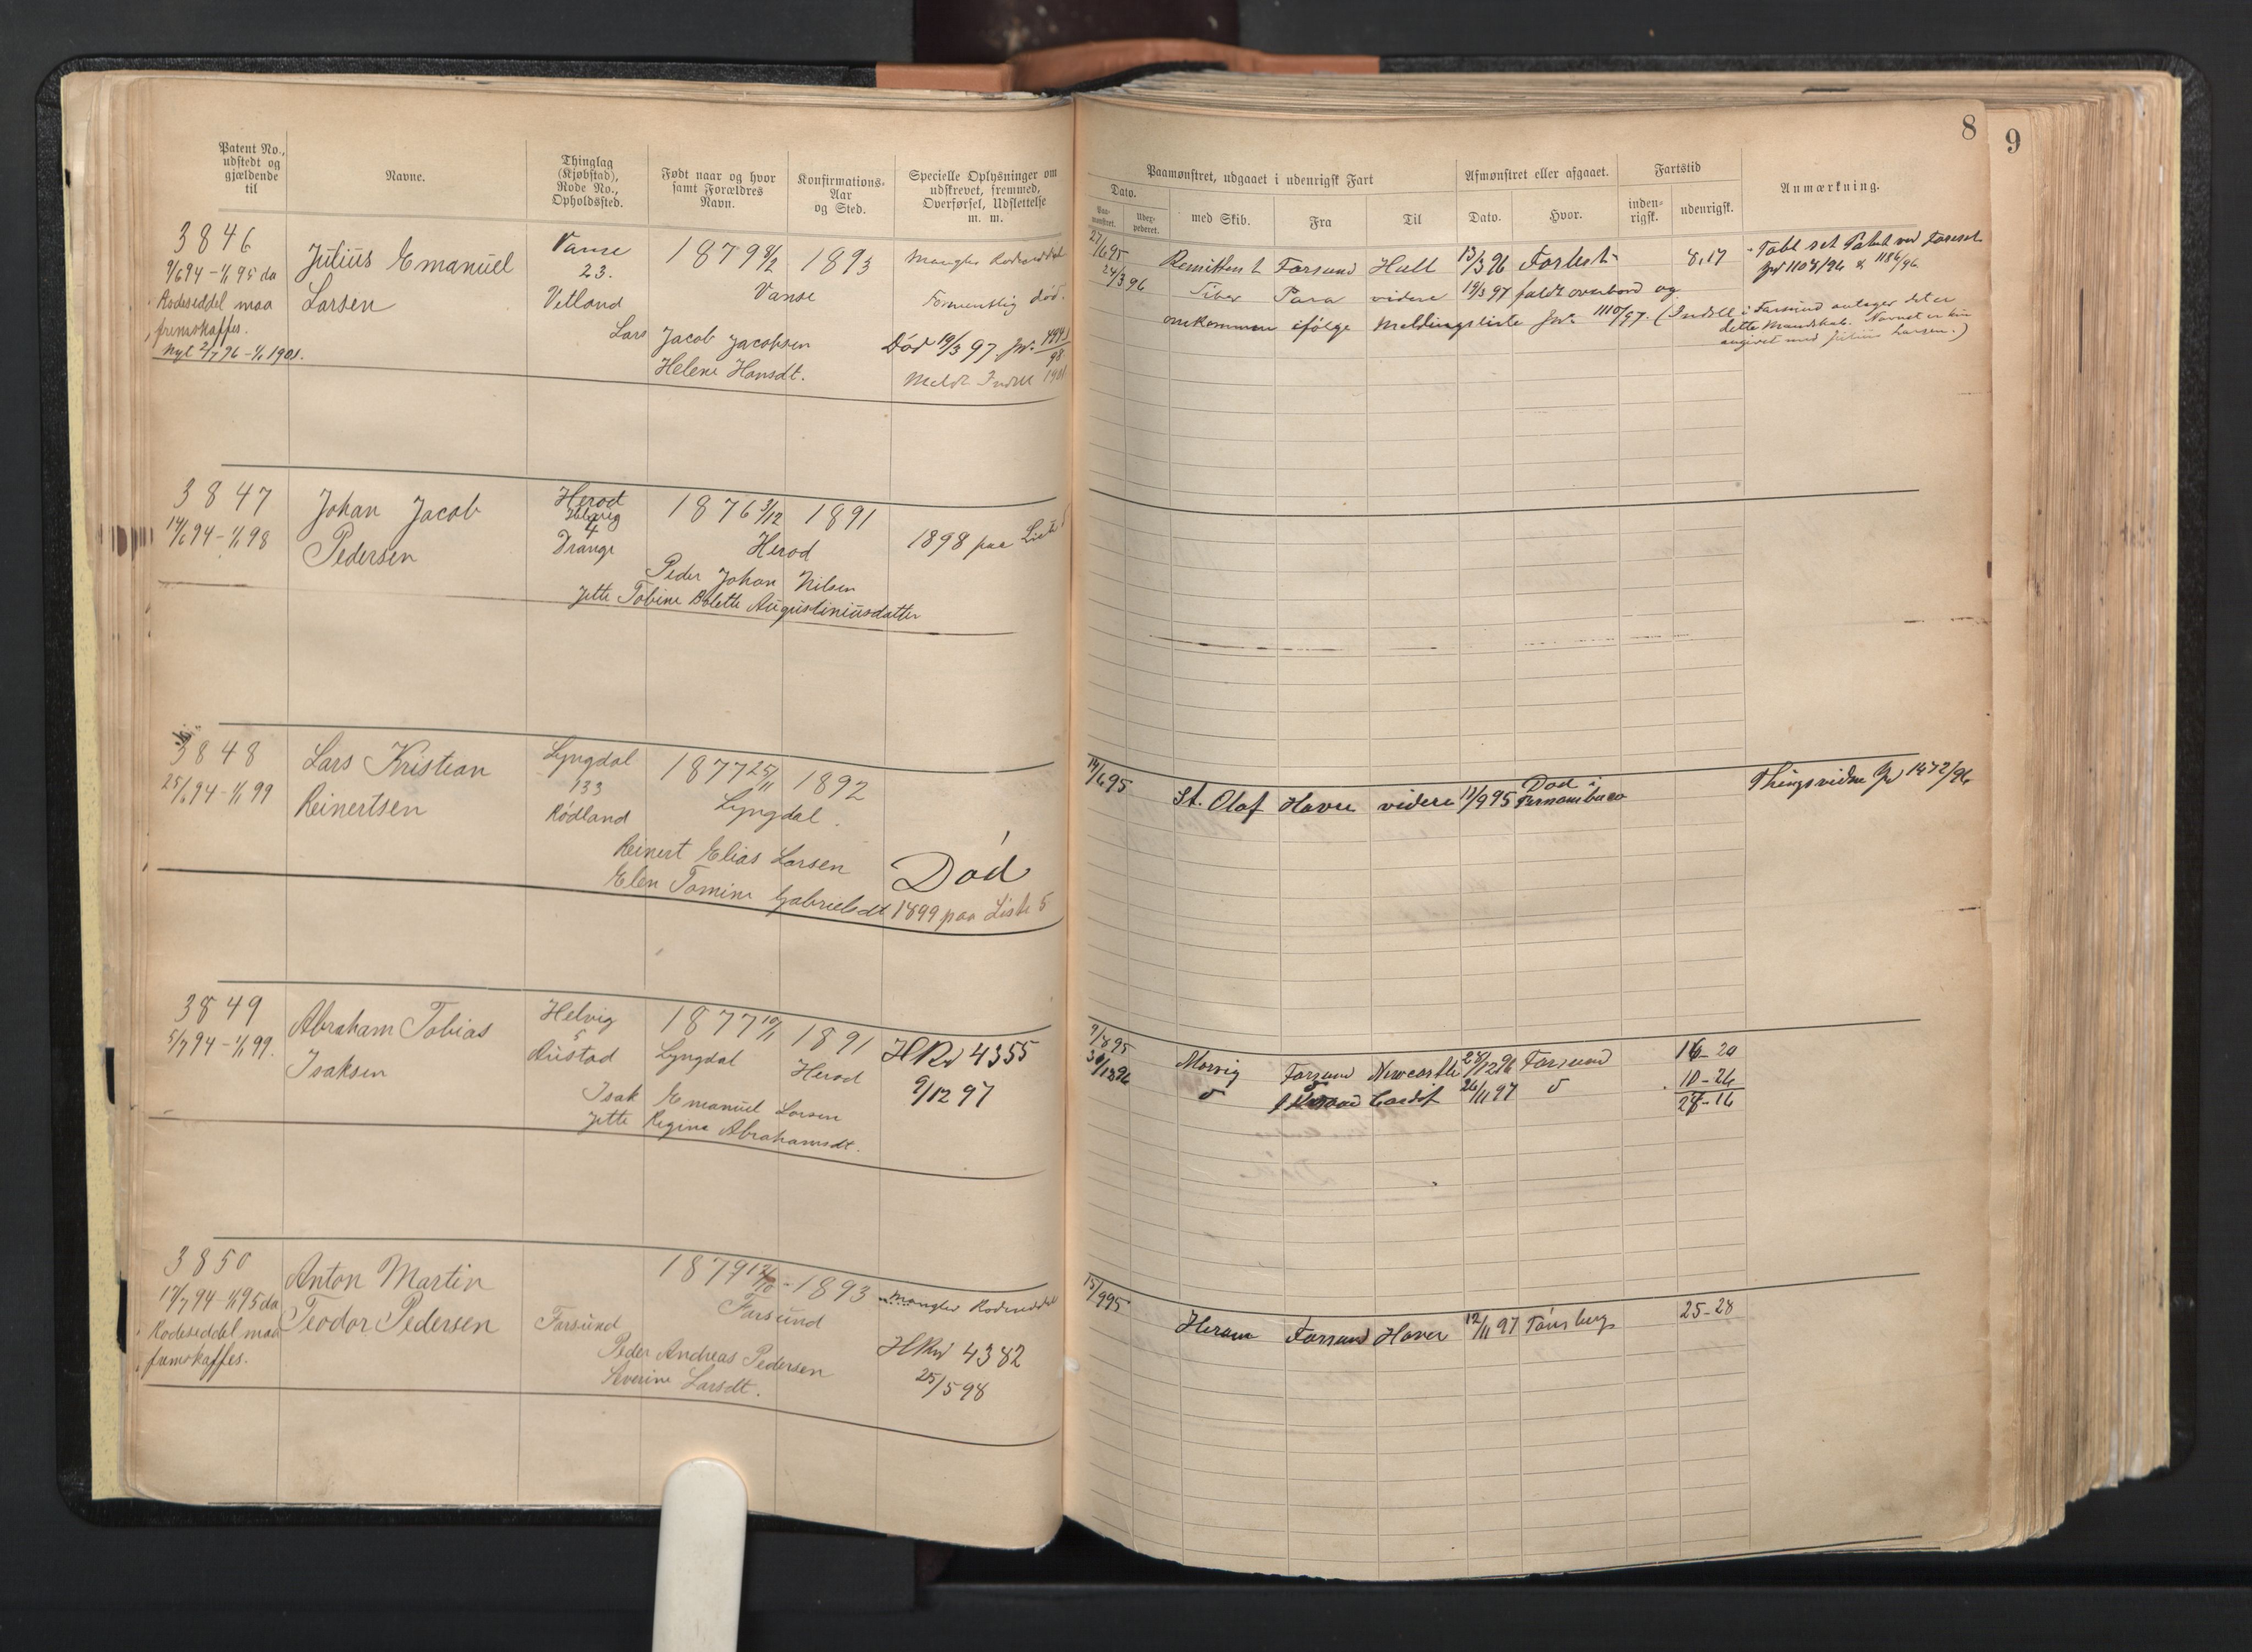 8
9
Patent No., udstedt og gjældende til
Navne.
Thinglag (Kjøbstad), Rode No., Opholdssted.
Født naar og hvor samt Forældres Navn.
Konfirmations-Aar og Sted.
Specielle Oplysninger om udskrevet, fremmed, Overførsel, Udslettelse m. m.
Paamønstret, udgaaet i udenrigsk Fart
Dato.
Paa-mønstret.
med Skib.
Fra
Til
Afmønstret eller afgaaet.
Dato.
Hvor.
Fartstid
inden-rigsk.
udenrigsk.
Anmærkning.
3846
9/6 94 - 1/1 95 da
Rodeseddel maa
fremskaffes.
Nyt 2/7 96 - 1/1 1901.
Julius Emanuel
Larsen
Vanse
23.
Vetland
1879 9/2
Vanse
Lars Jacob Jacobsen
Helene Hansdt.
1893
Mangler Rodeseddel
Formentlig død.
Død 19/3 97. Jr. 4441/98
Meldt Indll 1901
27/6 95
Farsund Hull 13/3 96
8,17
24/3 96
Para videre 19/3 97 faldt overbord og
omkommen ifølge Meldingsliste Jr. 1110/97. (Indll i Farsund antager det er
dette Mandskab. Navnet er kun
angivet med Julius Larsen.)
Jr 1108/96 & 1186/96
3847
14/6 94 - 1/1 98
Johan Jacob
Pedersen
Herod
Helvig
4
Drange
1876 3/12
Herod
Peder Johan Nilsen
Jette Tobine Bolette Augustiniusdatter
1891
1898 paa Liste 5
3848
25/6 94 - 1/1 99
Lars Kristian
Reinertsen
Lyngdal
133
Rødland
1877 25/11
Lyngdal
Reinert Elias Larsen
Elen Tomine Gabrielsdt
1892
Død
1899 paa Liste 5
14/6 95
St. Olaf Havre videre 11/9 95 Død i
Pernambuco
Thingsvidne Jr 1472/96
3849
5/7 94 - 1/1 99.
Abraham Tobias
Isaksen
Helvig
5
Rustad
1877 10/11
Lyngdal
Isak Emanuel Larsen
Jette Regine Abrahamsdt.
1891
Herod
HRv 4355
9/12 97
9/8 95
Morvig Farsund Newcastle 28/12 96 Farsund
16-20
30/12 96
Cardif 26/11 97
10-26
3850
17/7 94 - 1/1 95 da
Rodeseddel maa
fremskaffes.
Anton Martin
Teodor Pedersen
Farsund
1879 12/10
Farsund
Peder Andreas Pedersen
Severine Larsdt.
1893
Mangler Rodeseddel
HRv 4382
25/5 98
15/9 95
Hiram Farsund Havre 12/11 97 Tønsberg
25-28